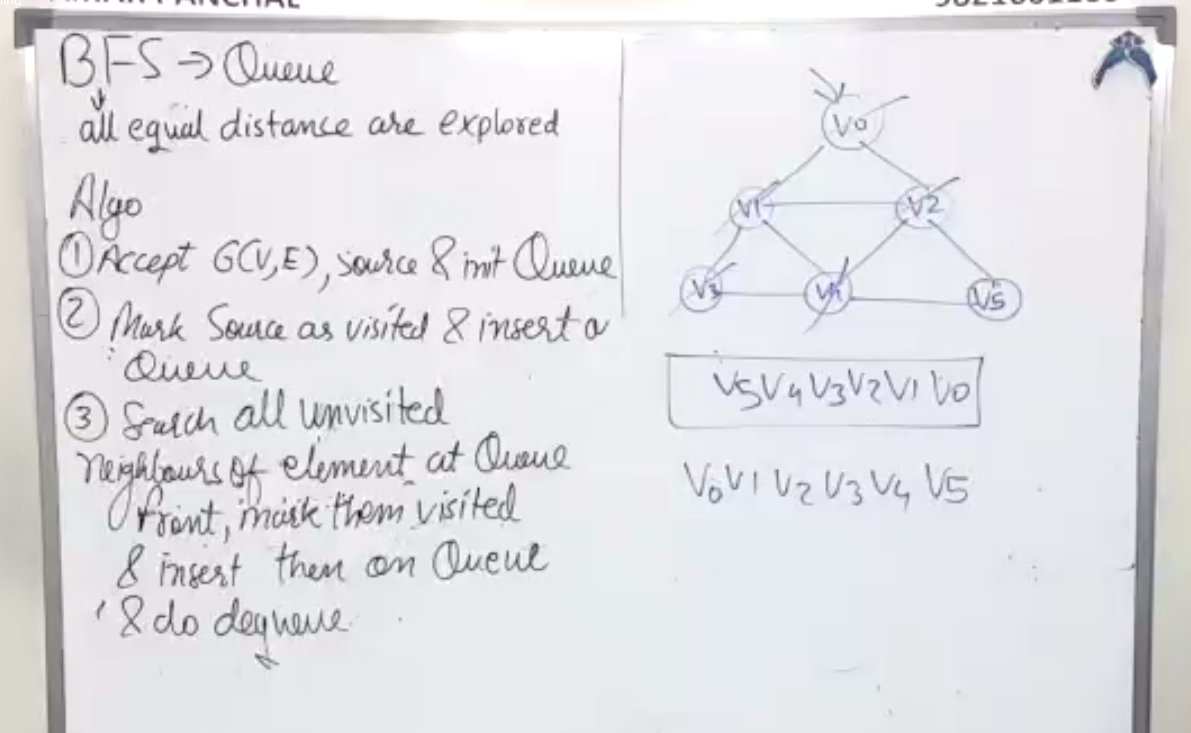 BFS → Queue
all equal distance are explored
Algo
① Accept G(V,E), source & init Queue
② Mark Source as visited & insert a
Queue
③ Search all unvisited
neighbours of element at Queue
front, mark them visited
& insert them on Queue
& do dequeue
V0
V1 V2
V3 V4 V5
V5 V4 V3 V2 V1 V0
V0 V1 V2 V3 V4 V5